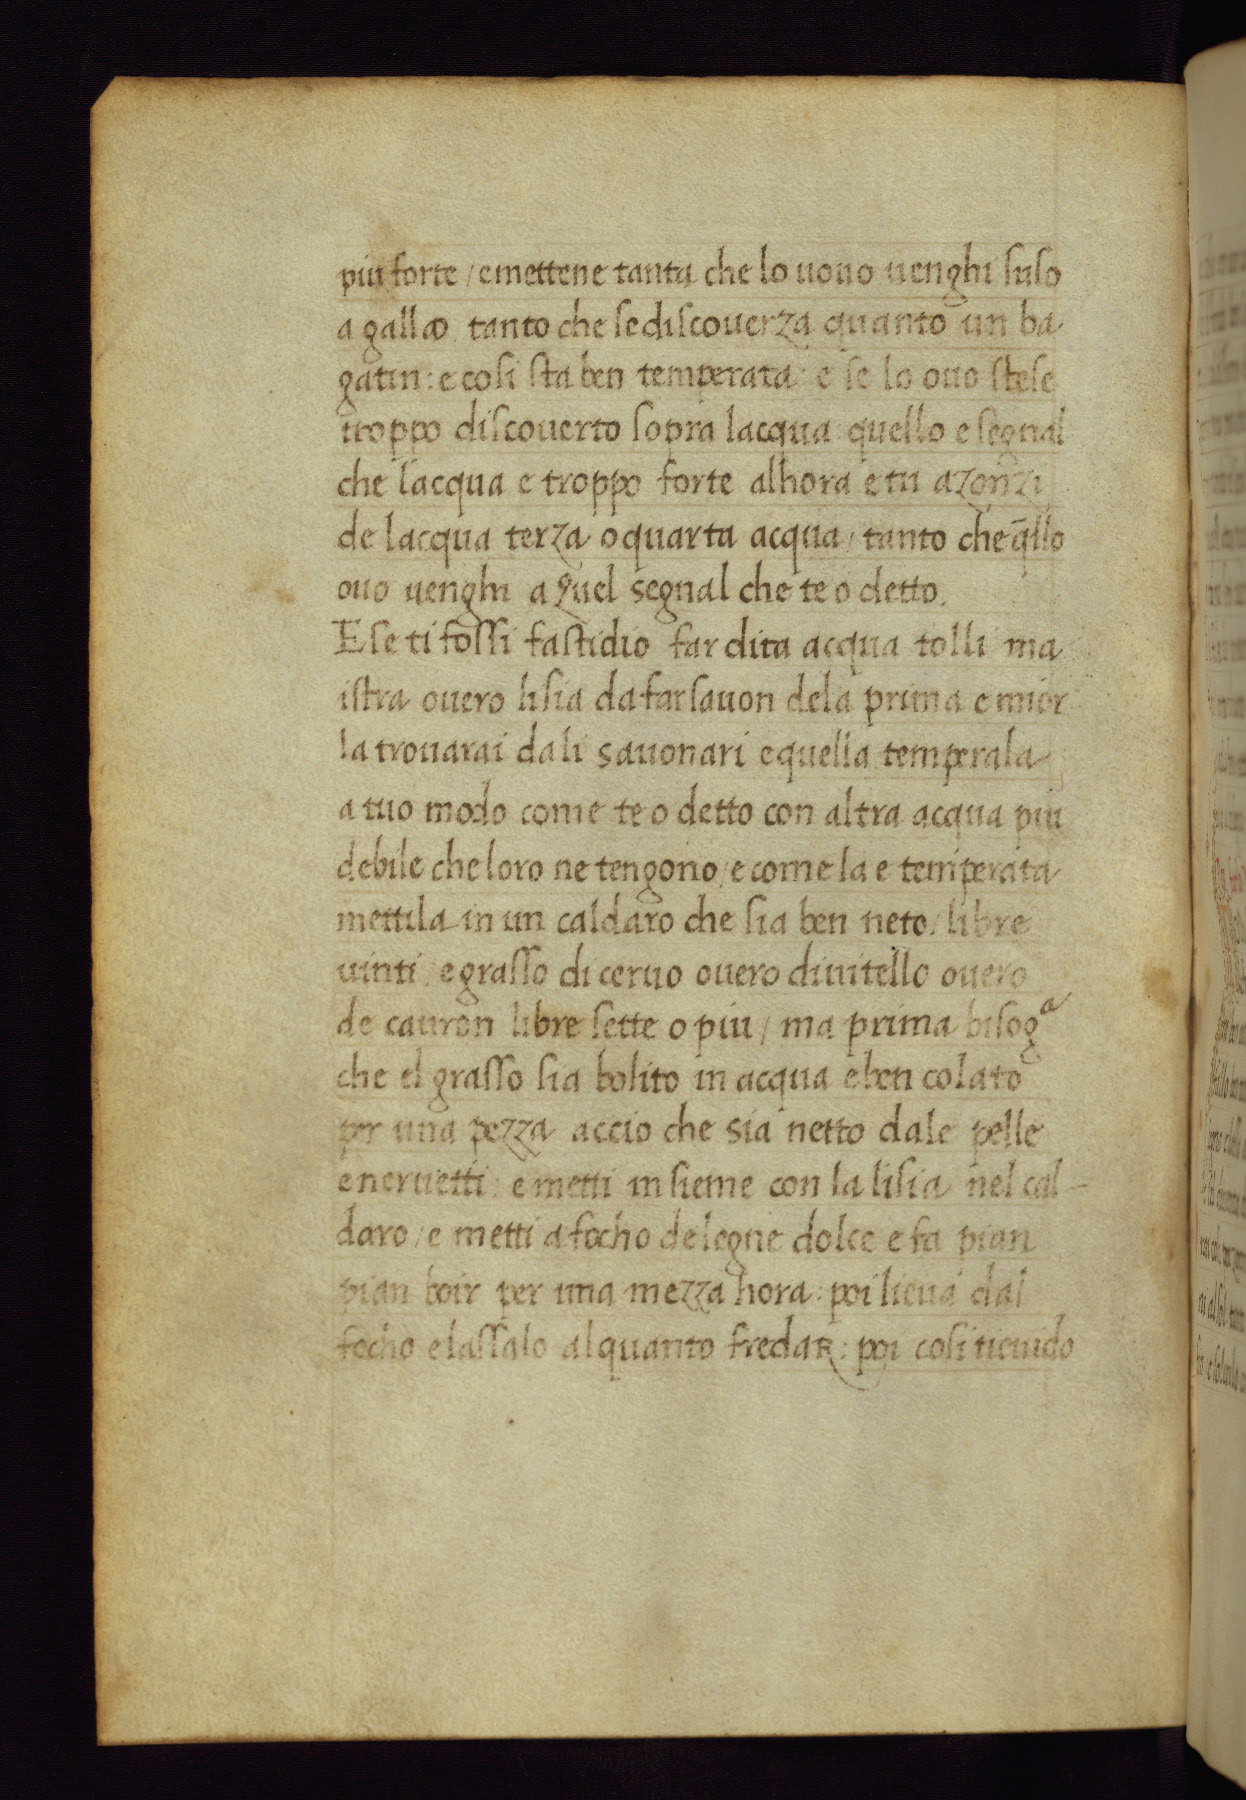 piu forte / e mettene tanta che lo uouo uenghi suso
a galla tanto che se discouerza quanto un ba
gatin : e cosi sta ben temperata : e se lo ouo stese
troppo discouerto sopra lacqua : quello e segnal
che lacqua e troppo forte alhora e tu azonzi
de lacqua terza o quarta acqua / tanto che q̄llo
ouo uenghi a quel segnal che te o detto.
E se ti fossi fastidio far dita acqua tolli ma
istra ouero lisia da far sauon dela prima e mior
la trouarai da li sauonari e quella temperala
a tuo modo come te o detto con altra acqua piu
debile che loro ne tengono / e come la e temperata
mettila in un caldaro che sia ben neto / libre
uinti : e grasso di ceruo ouero di uitello ouero
de cauron libre sette o piu / ma prima bisogᵃ
che el grasso sia bolito in acqua e ben colato
per una pezza accio che sia netto dale pelle
e neruetti : e metti insieme con la lisia nel cal-
daro / e metti a focho de legne dolce e fa pian
pian boir per una mezza hora : poi lieua dal
focho e lassalo alquanto fredar : poi cosi tieuido